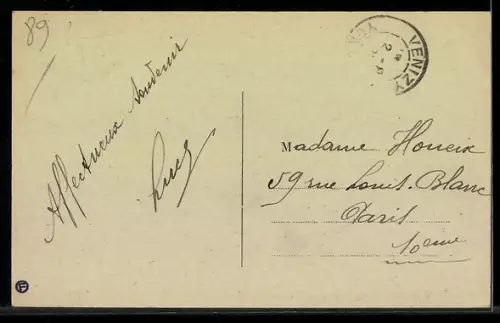 89
VENIZY
Affectueux souvenir
Lucy
Madame Honeix
59 rue Louis-Blanc
Paris
10eme